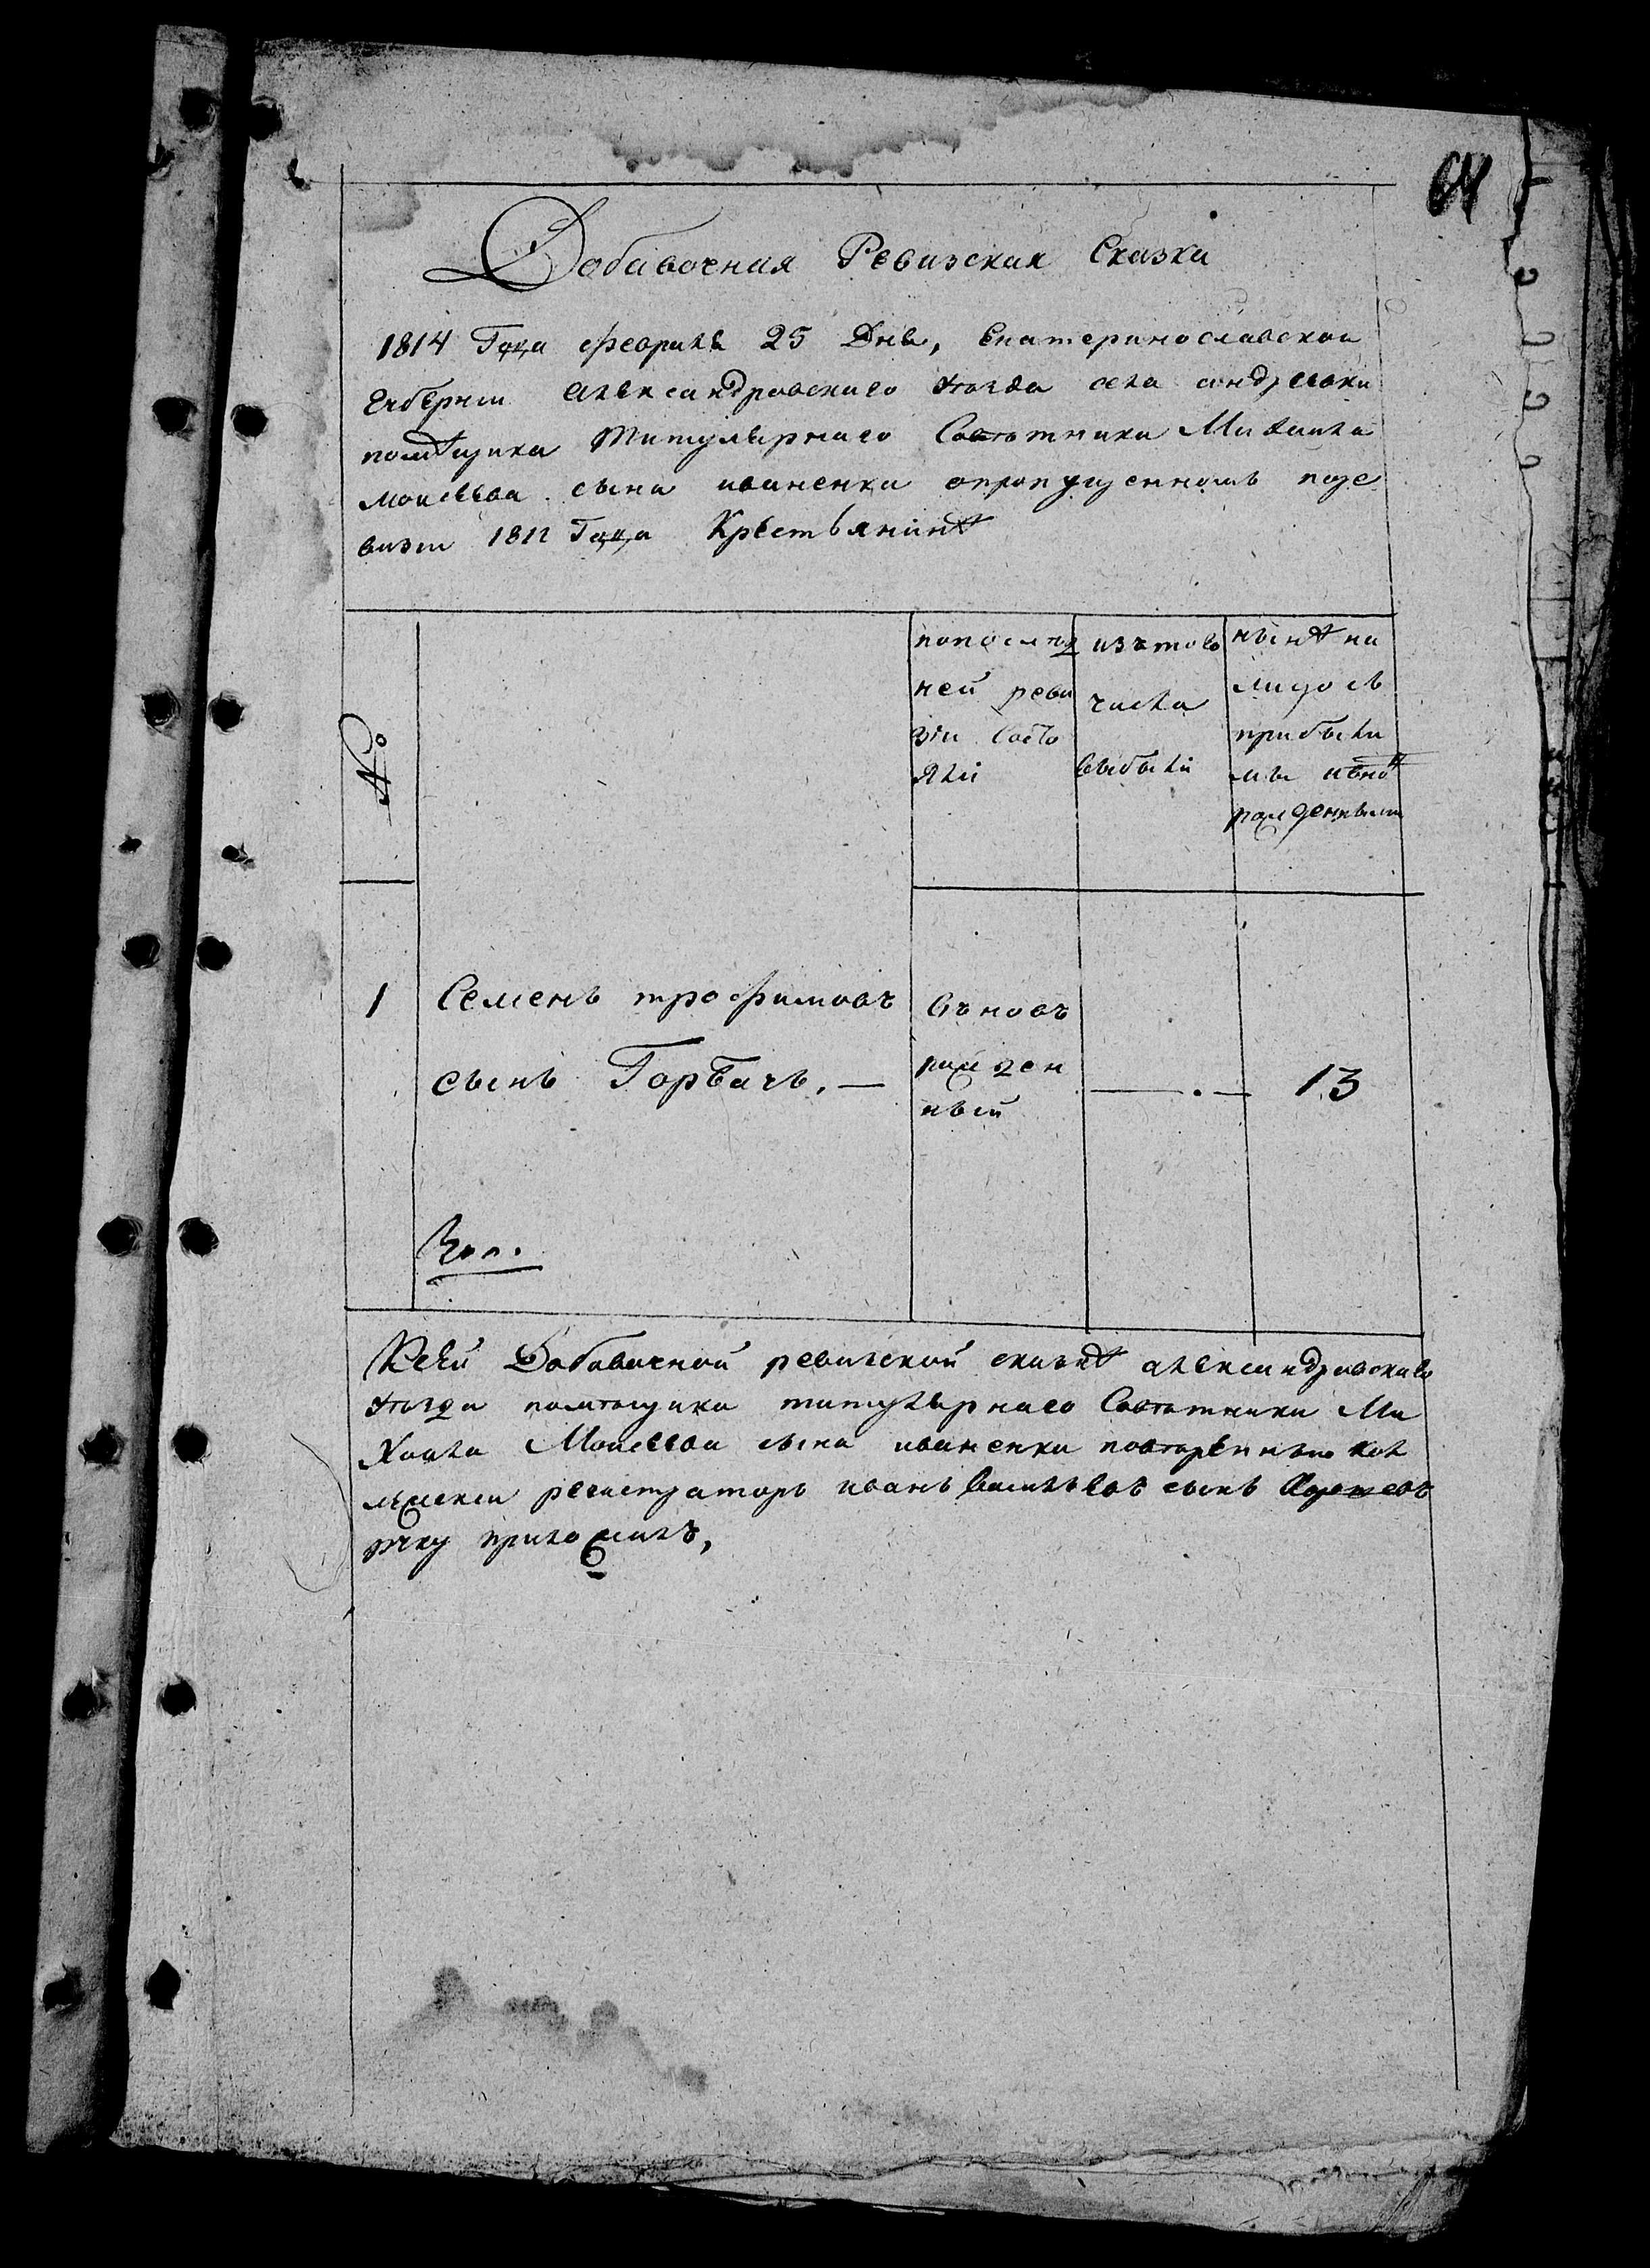 64
Добавочная Ревизская Сказка
1814 Года февраля 25 Дня, Екатеринославской
Губернии Александровскаго уезда села андреевки
помѣщика Титулярнаго Советника Михаила
моисеева сына иваненка опропущенномъ поре
визіи 1811 Года Крестьянинѣ
№
попослѣд
ней реви
зіи состо
яли
изътого
числа
выбыли
нынѣ на
лицо съ
прибылы
ми ивновѣ
рожденными
1
Семенъ трофимовъ
сынъ Горбачъ. —
вновъ
рожден
ный
— . —
13
Ксей Добавочной ревизской сказкѣ александровскаго
уезда помещика титулярнаго Советника Ми
хаила Моисеева сына иваненка поверенный кол
лежскій регистраторъ иванъ васильевъ сынъ
руку приложилъ,